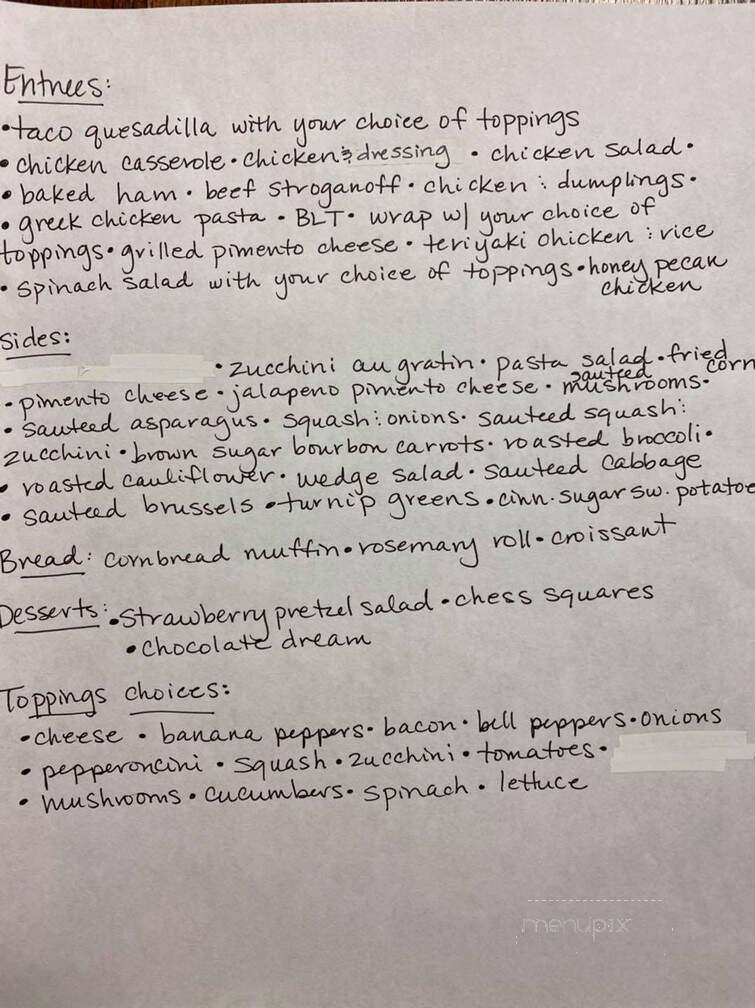 Entrees:
•taco quesadilla with your choice of toppings
• chicken casserole • chicken & dressing • chicken salad •
• baked ham • beef stroganoff • chicken : dumplings •
• greek chicken pasta • BLT • wrap w/ your choice of
toppings • grilled pimento cheese • teriyaki chicken : rice
• spinach salad with your choice of toppings • honey pecan
chicken
Sides:
• zucchini au gratin • pasta salad • fried
corn
• pimento cheese • jalapeno pimento cheese • sauteed mushrooms •
• sauteed asparagus • squash : onions • sauteed squash :
zucchini • brown sugar bourbon carrots • roasted broccoli •
• roasted cauliflower • wedge salad • sauteed cabbage
• sauteed brussels • turnip greens • cinn. sugar sw. potatoe
Bread: cornbread muffin • rosemary roll • croissant
Desserts: • strawberry pretzel salad • chess squares
• chocolate dream
Toppings choices:
• cheese • banana peppers • bacon • bell peppers • onions
• pepperoncini • squash • zucchini • tomatoes •
• mushrooms • cucumbers • spinach • lettuce
menupix